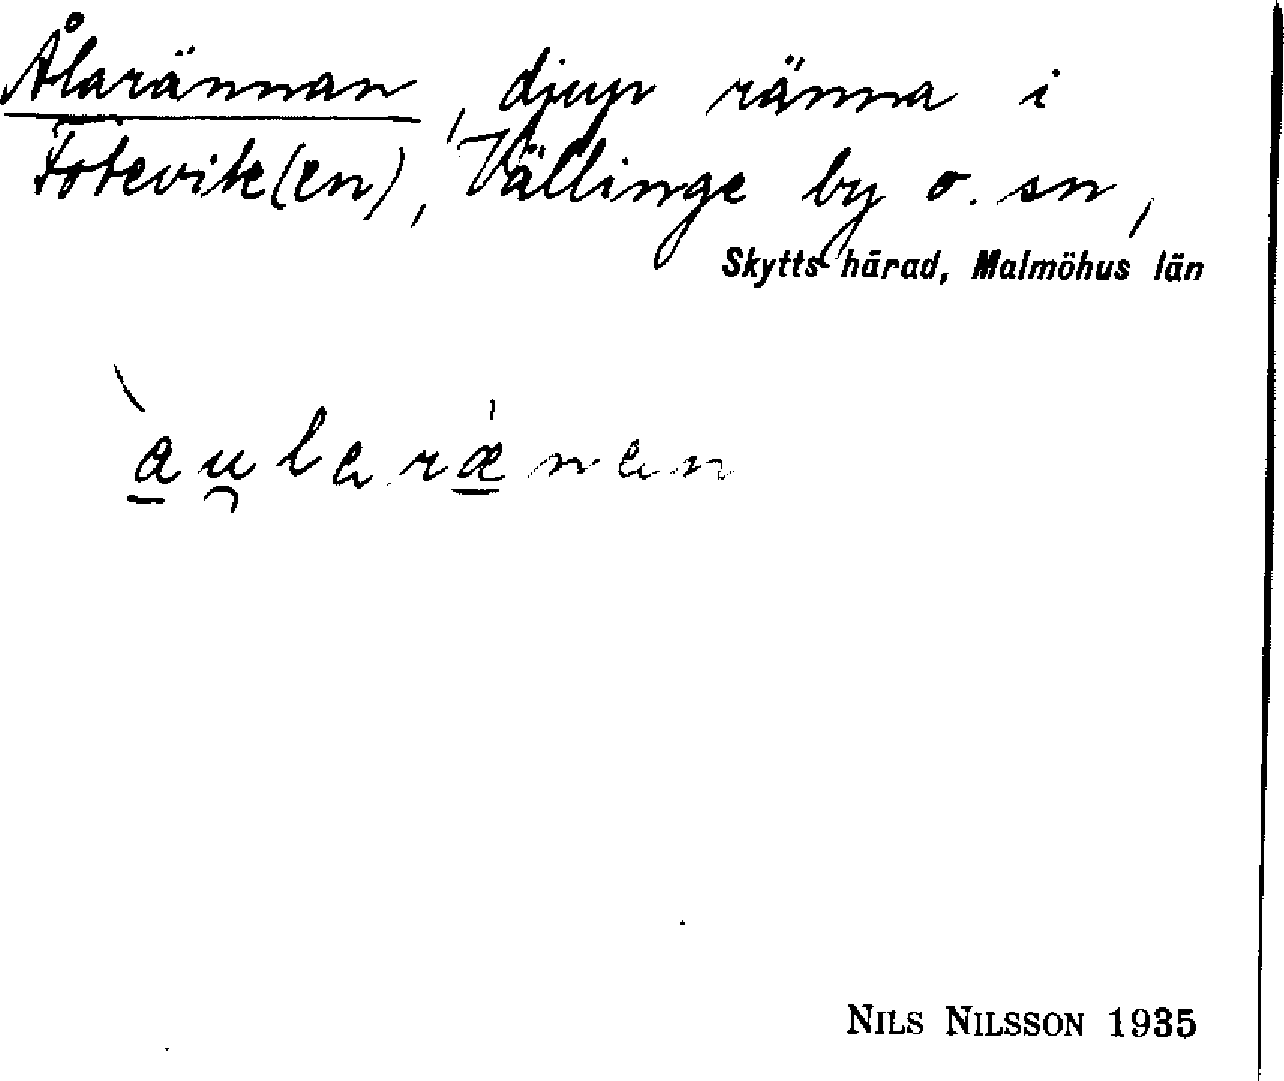 Ålarännan, djup ränna i
Fotevik(en), Vällinge by o. sn,
Skytts härad, Malmöhus län
au̯larænan
NILS NILSSON 1935